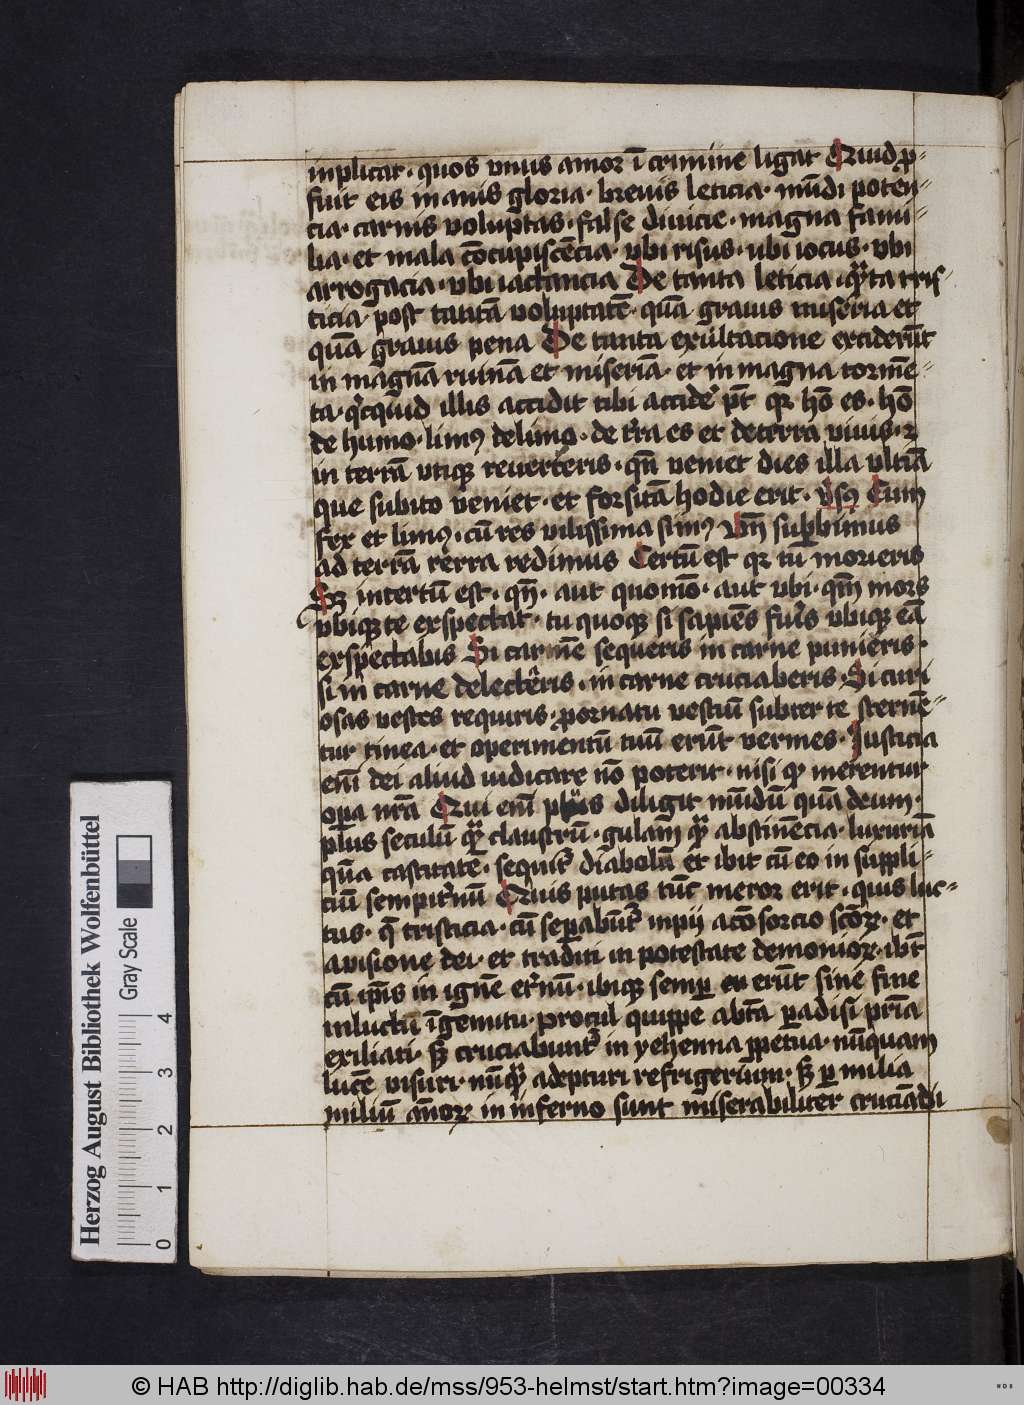 inplicat · quos vnus amor ī crimine ligat Quid ꝓ-
fuit eis inanis gloria · breuis leticia · mūdi poten-
cia · carnis voluptas · false diuicie · magna fami-
lia · et mala cōcupiscēcia · vbi risus · vbi iocus · vbi
arrogacia · vbi iactancia De tanta leticia · q̄ta tris-
ticia · post tantā voluptatē · quā grauis miseria et
quā grauis pena De tanta exultacione exciderūt
in magnā ruinā et miseriā · et in magna tormē-
ta · q'cquid illis accidit tibi accide' pt̄ qꝛ hō es · hō
de humo · limꝰ de limo · de t'ra es et de terra viuis · ⁊
in terrā vtiqꝫ reuerteris · qn̄ veniet dies illa vltīa
que subito veniet · et forsitā hodie erit · v̓sꝰ Cum
fex et limꝰ · cū res vilissima simꝰ Vn̄ suꝑbimus
ad terrā terra redimus Certū est qꝛ tu morieris
Sꝫ incertū est · qn̄ · aut quomō · aut vbi · qm̄ mors
vbiqꝫ te exspectat · tu quoqꝫ si sapiēs fu'is vbiqꝫ eā
exspectabis Si carnē sequeris in carne punieris ·
si in carne delectēris · in carne cruciaberis · Si curi
osas vestes requiris · ꝓ ornatu vestiū subter te sternē-
tur tinea · et operimentū tuū erūt vermes · Iusticia
em̄ dei aliud iudicare nō poterit · nisi qꝫ merentur
oꝑa nr̄a Qui em̄ plus diligit mūdū quā deum ·
plus seculū q̄ claustrū · gulam q̄ abstinēcia · luxuriā
quā castitatē · sequit' diabolū et ibit cū eo in suppli-
ciū sempit'nū Quis putas tūc meror erit · quis luc-
tus · q̄ tristicia · cū seꝑabūt' inpij a cōsorcio scōꝝ · et
a visione dei · et traditi in potestate demonioꝝ · ibūt
cū ip̄is in ignē et'nū · ibiqꝫ semꝑ erūt sine fine
in luctu ī gemitu · procul quippe ab t̄a ꝑadisi pr̄ia
exiliati · sꝫ cruciabunt' in yehenna ꝑpetua · nūquam
lucē visuri · nūq̄ adepturi refrigerium · sꝫ ꝑ milia
miliū ānoꝝ in inferno sunt miserabiliter cruciādi
Herzog August Bibliothek Wolfenbüttel
Gray Scale
0 1 2 3 4
© HAB http://diglib.hab.de/mss/953-helmst/start.htm?image=00334